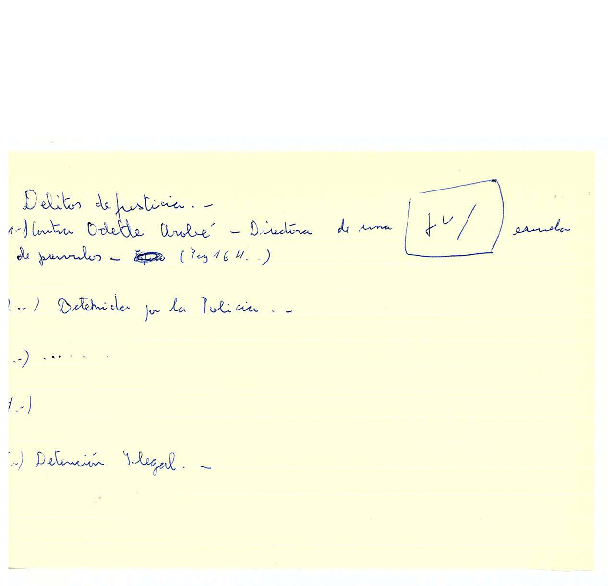 Delitos de justicia. -
1-) Contra Odette - Directora de una escuela
de parvulos - (Pag 164..)
..) Detenida por la Policia. -
.-) ......
.-)
.-) Detención Ylegal. -